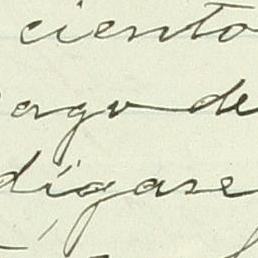 ciento
argo de
dígase